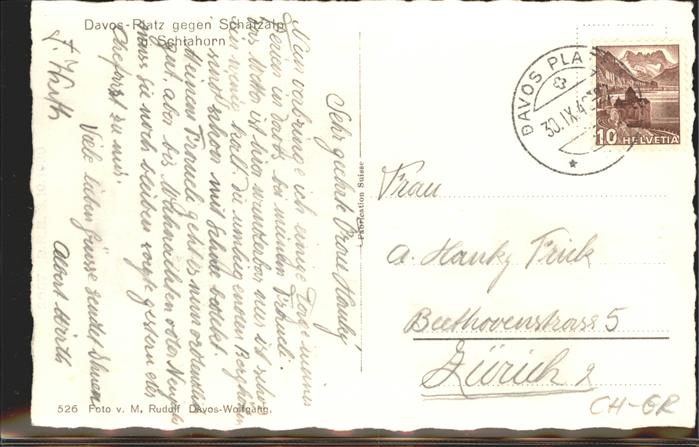 Davos-Platz gegen Schatzalp
u. Schiahorn
Sehr geehrte Frau Hanky
Nun verbringe ich einige Tage meiner
Ferien in davos bei meinem Freund.
das Wetter ist hier wunderbar nur ist schon
ein wenig kalt. die umliegenden Berghäupter
sind schon mit Schnee bedeckt.
Meinem Freund geht es nun ordentlich
gut, aber bis Weihnachten oder Neujahr
muss sie noch bleiben sagte gestern der
Chefarzt zu mir.
Viele liebe Grüsse sendet Ihnen
Albert
Fabrication Suisse
DAVOS PLATZ
30.IX.4
10 HELVETIA
Frau
A. Hanky Frick
Beethovenstrasse 5
Zürich 2
CH-GR
526 Foto v. M. Rudolf Davos-Wolfgang.